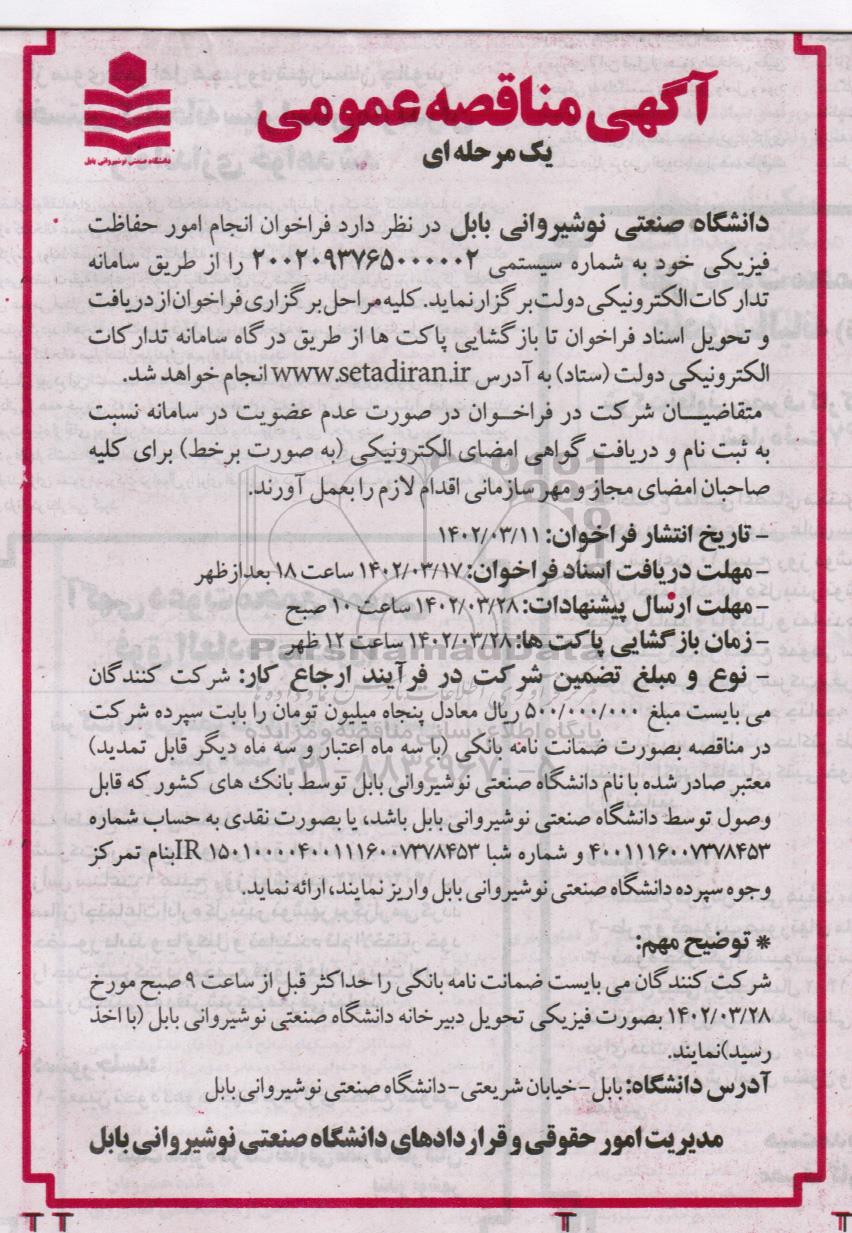 آگهی مناقصه عمومی
یک مرحله ای
دانشگاه صنعتی نوشیروانی بابل
دانشگاه صنعتی نوشیروانی بابل در نظر دارد فراخوان انجام امور حفاظت
فیزیکی خود به شماره سیستمی ۲۰۰۲۰۹۳۷۶۵۰۰۰۰۰۲ را از طریق سامانه
تدارکات الکترونیکی دولت برگزار نماید. کلیه مراحل برگزاری فراخوان از دریافت
و تحویل اسناد فراخوان تا بازگشایی پاکت ها از طریق درگاه سامانه تدارکات
الکترونیکی دولت (ستاد) به آدرس www.setadiran.ir انجام خواهد شد.
متقاضیان شرکت در فراخوان در صورت عدم عضویت در سامانه نسبت
به ثبت نام و دریافت گواهی امضای الکترونیکی (به صورت برخط) برای کلیه
صاحبان امضای مجاز و مهر سازمانی اقدام لازم را بعمل آورند.
- تاریخ انتشار فراخوان: ۱۴۰۲/۰۳/۱۱
- مهلت دریافت اسناد فراخوان: ۱۴۰۲/۰۳/۱۷ ساعت ۱۸ بعدازظهر
- مهلت ارسال پیشنهادات: ۱۴۰۲/۰۳/۲۸ ساعت ۱۰ صبح
- زمان بازگشایی پاکت ها: ۱۴۰۲/۰۳/۲۸ ساعت ۱۲ ظهر
ParsNamadData
- نوع و مبلغ تضمین شرکت در فرآیند ارجاع کار: شرکت کنندگان
می بایست مبلغ ۵۰۰/۰۰۰/۰۰۰ ریال معادل پنجاه میلیون تومان را بابت سپرده شرکت
در مناقصه بصورت ضمانت نامه بانکی (با سه ماه اعتبار و سه ماه دیگر قابل تمدید)
معتبر صادر شده با نام دانشگاه صنعتی نوشیروانی بابل توسط بانک های کشور که قابل
وصول توسط دانشگاه صنعتی نوشیروانی بابل باشد، یا بصورت نقدی به حساب شماره
۴۰۰۱۱۱۶۰۰۷۳۷۸۴۵۳ و شماره شبا IR ۱۵۰۱۰۰۰۰۴۰۰۱۱۱۶۰۰۷۳۷۸۴۵۳ بنام تمرکز
وجوه سپرده دانشگاه صنعتی نوشیروانی بابل واریز نمایند، ارائه نماید.
* توضیح مهم:
شرکت کنندگان می بایست ضمانت نامه بانکی را حداکثر قبل از ساعت ۹ صبح مورخ
۱۴۰۲/۰۳/۲۸ بصورت فیزیکی تحویل دبیرخانه دانشگاه صنعتی نوشیروانی بابل (با اخذ
رسید) نمایند.
آدرس دانشگاه: بابل - خیابان شریعتی - دانشگاه صنعتی نوشیروانی بابل
مدیریت امور حقوقی و قراردادهای دانشگاه صنعتی نوشیروانی بابل